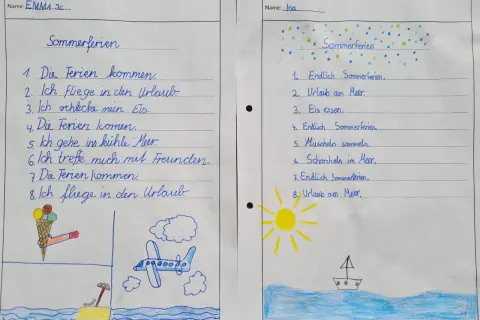 Name: EMMA 3c
Sommerferien
1. Die Ferien kommen.
2. Ich fliege in den Urlaub
3. Ich schlecke mein Eis.
4. Die Ferien komen.
5. Ich gehe ins kühle Meer.
6. Ich treffe mich mit Freunden.
7. Die Ferien kommen.
8. Ich fliege in den Urlaub
Name:
Sommerferien
1. Endlich Sommerferien.
2. Urlaub am Meer.
3. Eis essen.
4. Endlich Sommerferien.
5. Muscheln sammeln.
6. Schnorcheln im Meer.
7. Endlich Sommerferien.
8. Urlaub am Meer.